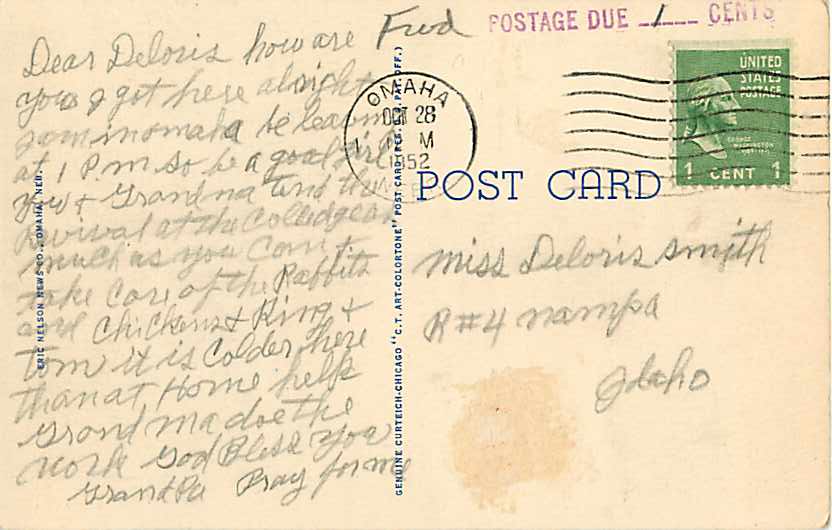 Dear Deloris how are
you I got here alright
am in omaha be leaving
at 1 P.m so be a good girl
you & Grandma tend the
Revival at the Colledge as
much as you Can &
take Care of the Rabbits
and Chickens & King &
tom it is Colder here
than at Home help
Grand ma doe the
work God Bless you
GrandPa Pray for me
Fwd
POSTAGE DUE 1 CENTS
OMAHA
OCT 28
1 PM
1952
UNITED
STATES
POSTAGE
GEORGE
WASHINGTON
1 CENT 1
POST CARD
Miss Deloris Smith
R#4 nampa
Idaho
ERIC NELSON NEWS CO., OMAHA, NEB.
GENUINE CURTEICH-CHICAGO "C.T. ART-COLORTONE" POST CARD (REG. U.S. PAT. OFF.)